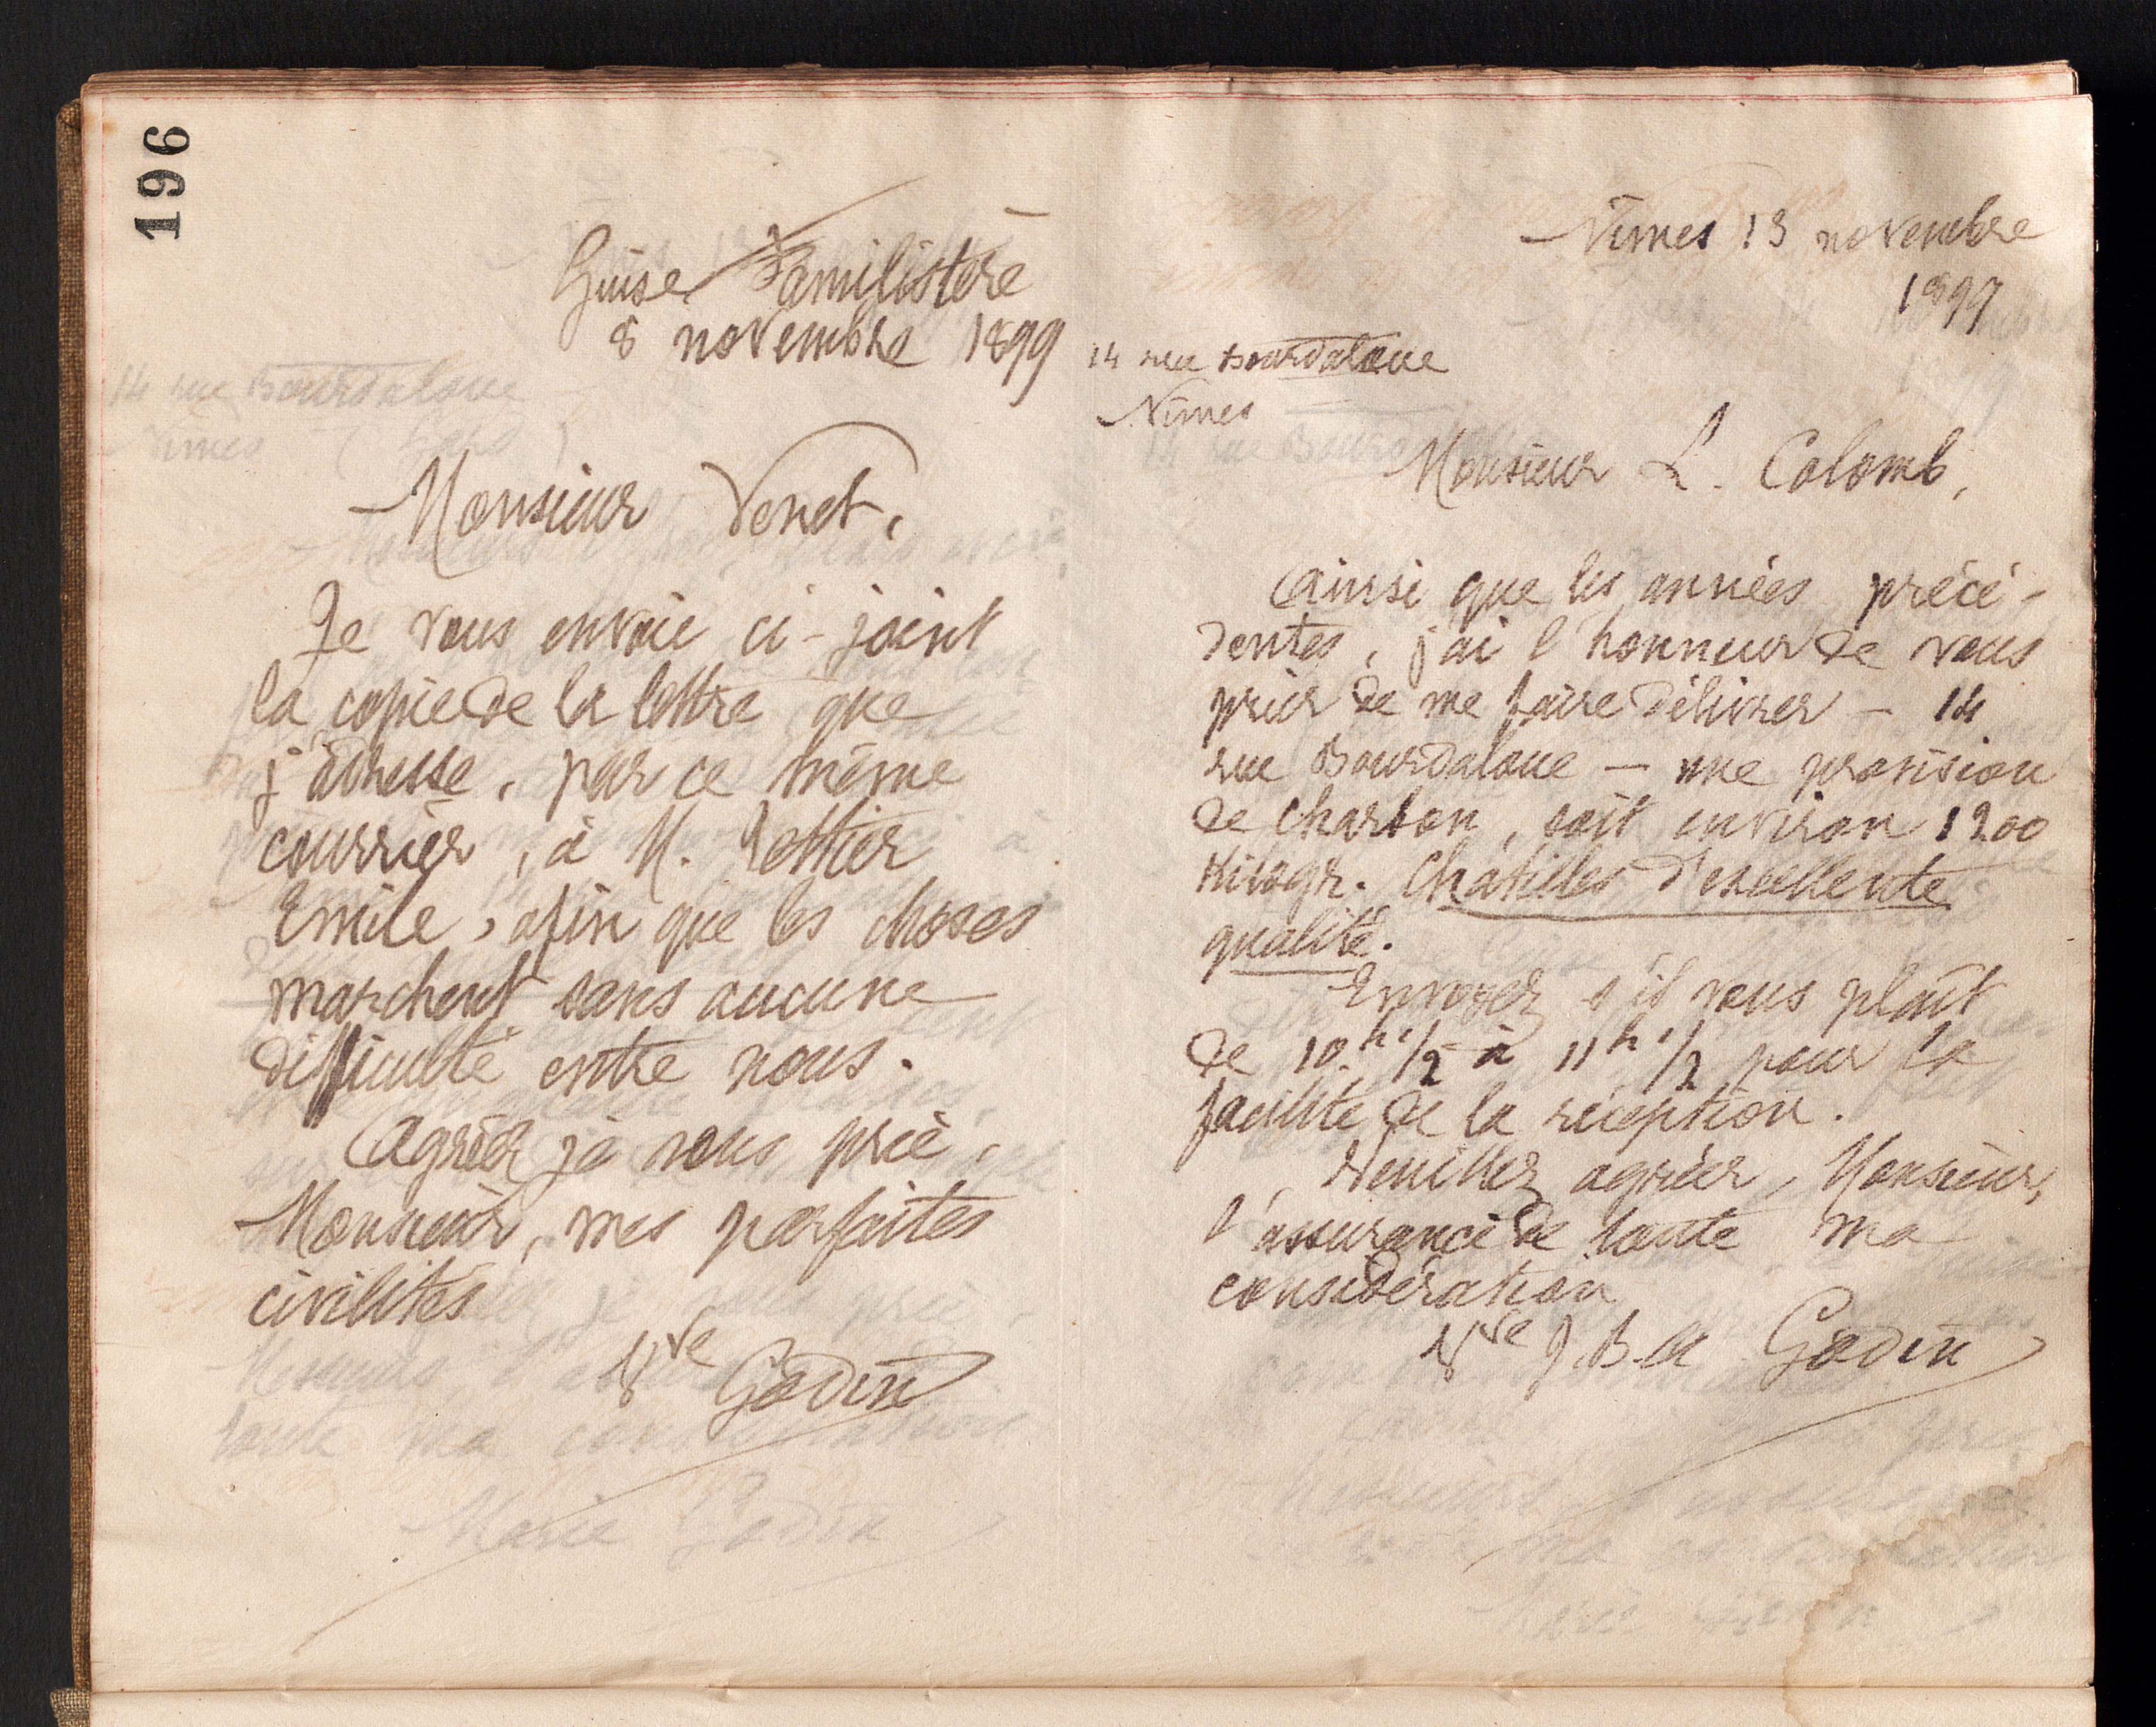 196
Guise Familistère
8 novembre 1899
Monsieur Venet,
Je vous envoie ci-joint
la copie de la lettre que
j'adresse, par ce même
courrier, à M.
Emile, afin que les choses
marchent sans aucune
difficulté entre nous.
Agréez je vous prie,
Monsieur, mes parfaites
civilités
Vve Godin
Nîmes 13 novembre
1899
14 rue Bourdaloue
Nîmes
Monsieur L. Colomb,
Ainsi que les années précé-
dentes, j'ai l'honneur de vous
prier de me faire délivrer – 14
rue Bourdaloue – une provision
de charbon, soit environ 1200
Kilogr. Chatilles d'excellente
qualité.
Envoyez s'il vous plaît
de 10h 1/2 à 11h 1/2 pour la
facilité de la réception.
Veuillez agréer, Monsieur,
l'assurance de toute ma
considération
Vve J. B. A. Godin